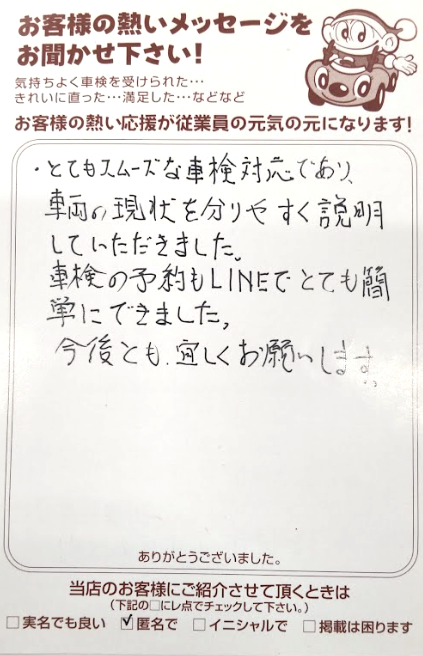 お客様の熱いメッセージを
お聞かせ下さい!
気持ちよく車検を受けられた…
きれいに直った…満足した…などなど
お客様の熱い応援が従業員の元気の元になります!
・とてもスムーズな車検対応であり、
車両の現状を分りやすく説明
していただきました。
車検の予約もLINEでとても簡
単にできました。
今後とも、宜しくお願いします。
ありがとうございました。
当店のお客様にご紹介させて頂くときは
(下記の□にレ点でチェックして下さい。)
□実名でも良い ☑匿名で □イニシャルで □掲載は困ります